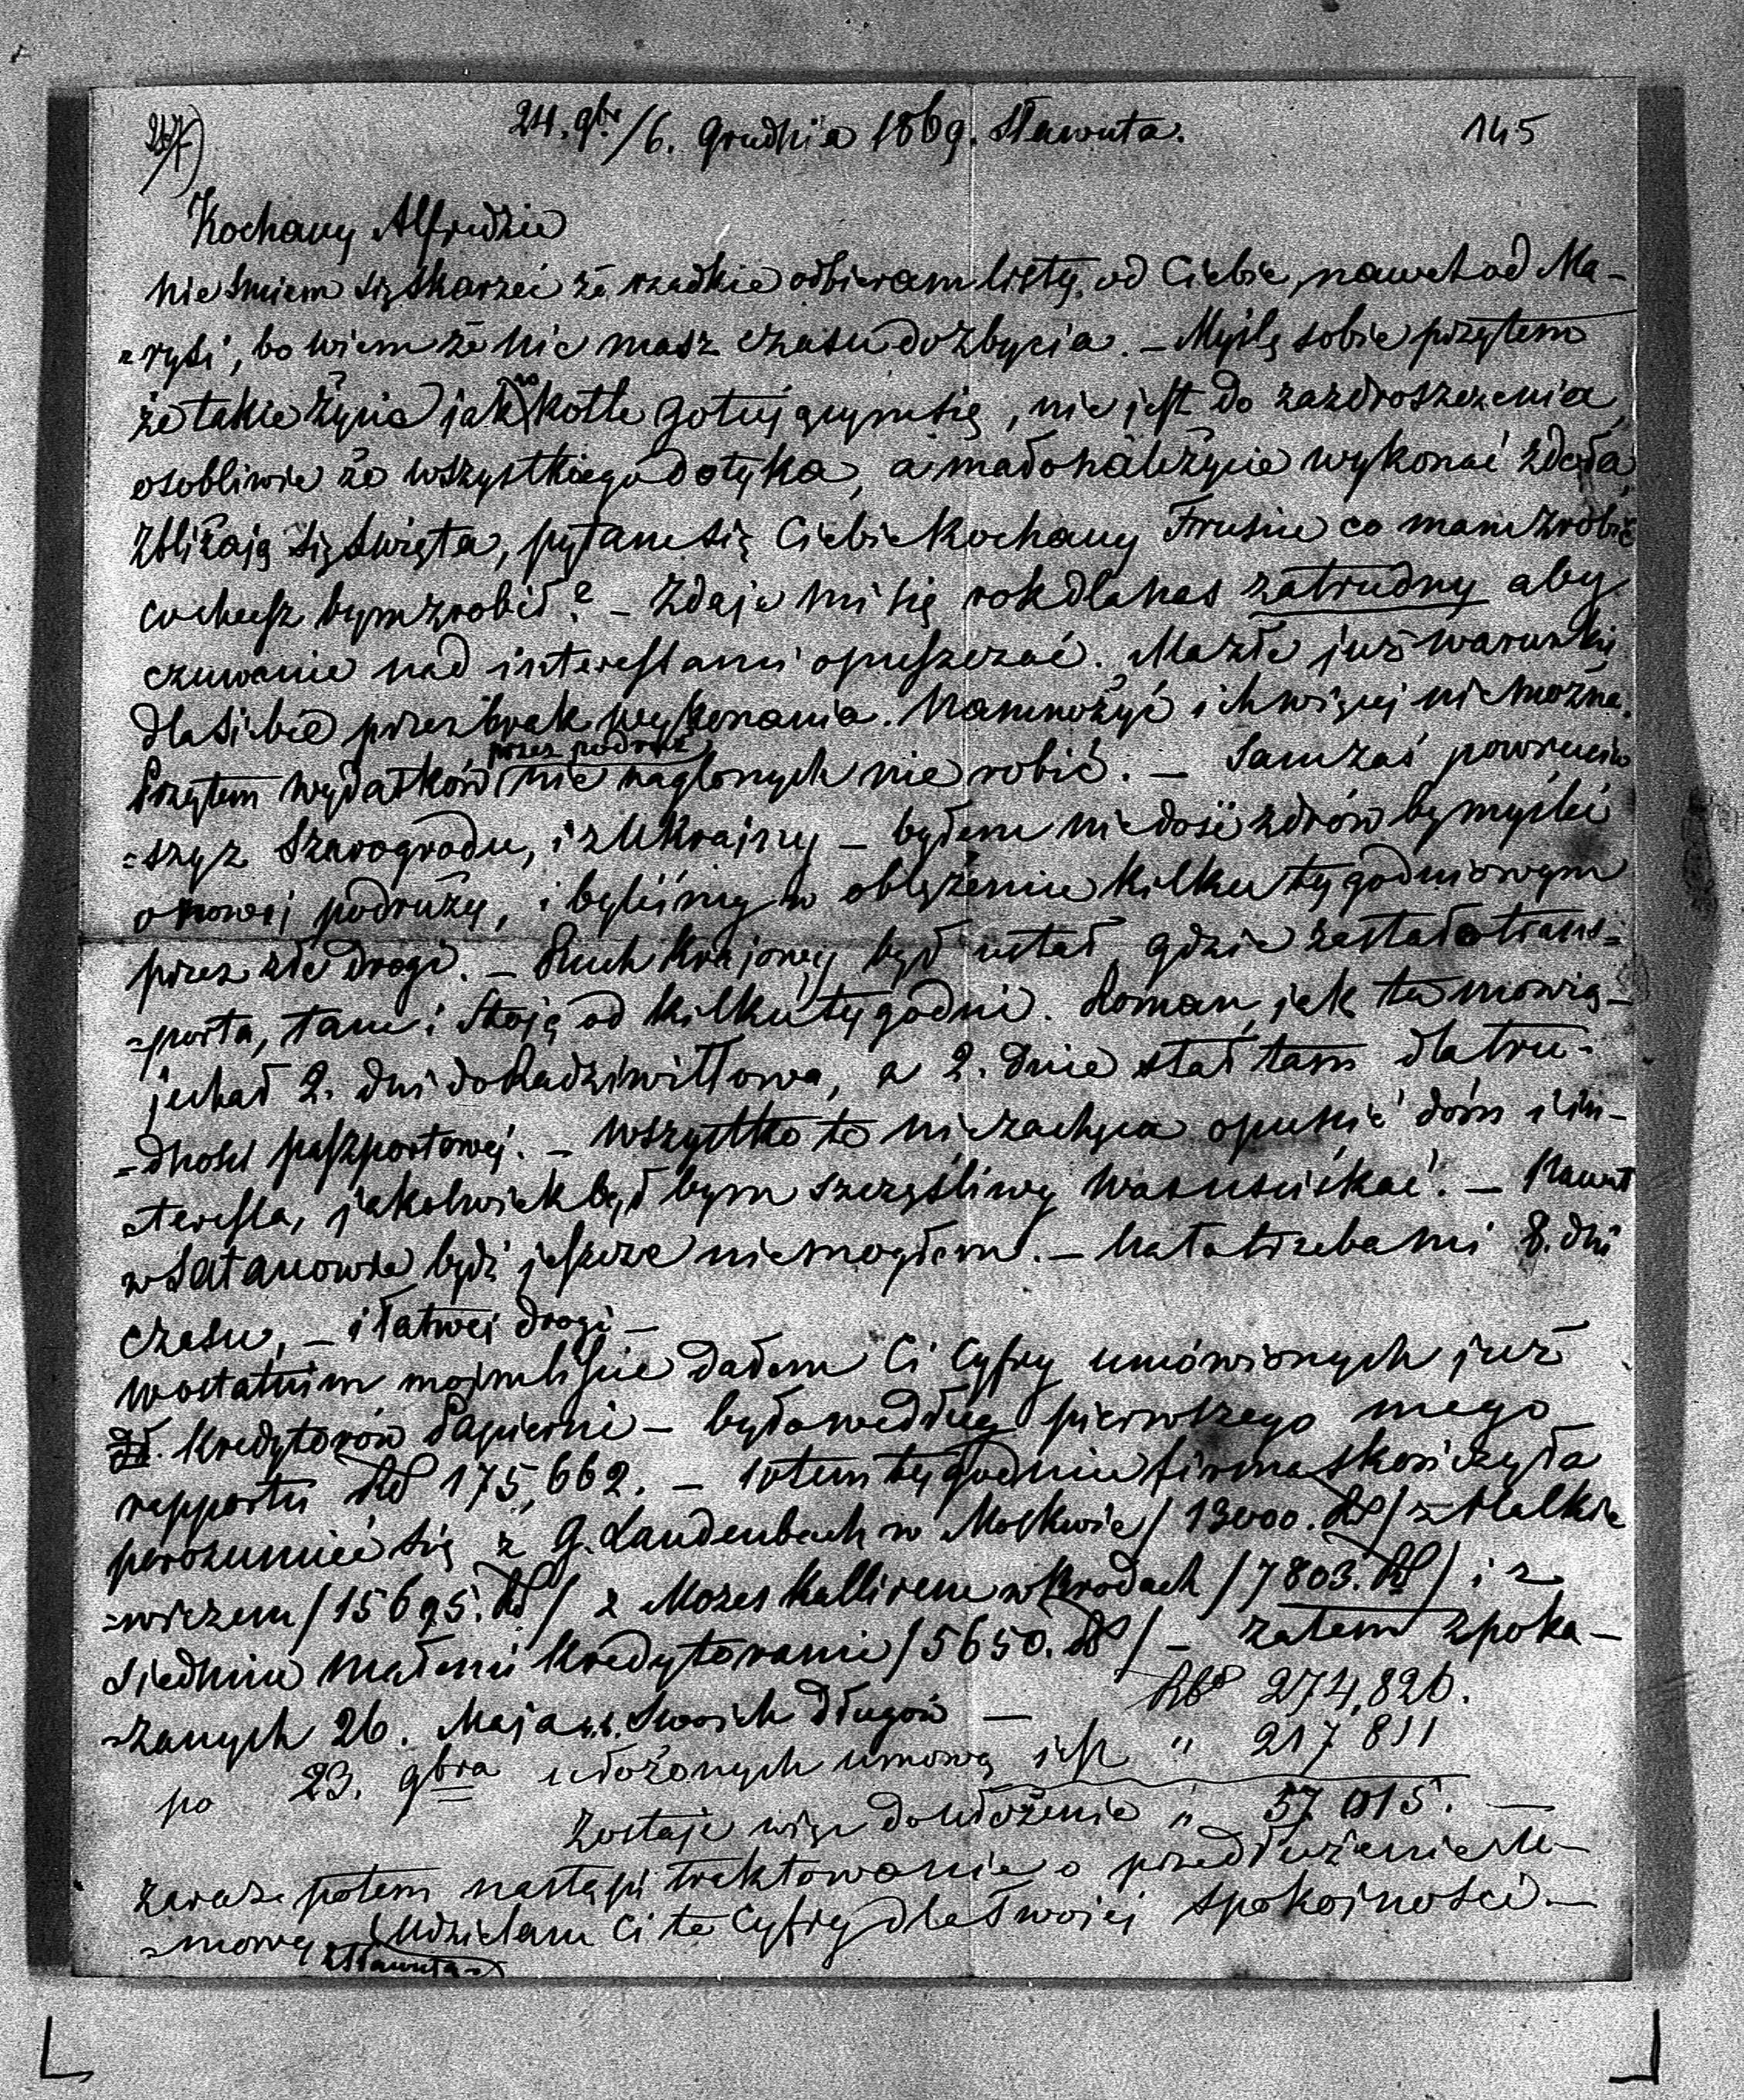 267)
24. 9br/6. Grudnia 1869. Sławuta.
145
Kochany Alfredzie
nie śmiem się skarżeć że rzadkie odbieram listy, od Ciebie, nawet od Ma-
=rysi, bo wiem że nie masz czasu do zbycia. – Myślę sobie przytem
że takie życie jak w kotle gotującym się, nie jest do zazdroszczenia,
osobliwie że wszystkiego dotyka, a mało należycie wykonać zdoła,
Zbliżają się Święta, pytam się Ciebie Kochany Frusiu co mam zrobić
co chcesz bym zrobił? – Zdaje mi się rok dla nas zatrudny aby
czuwanie nad interessami opuszczać. Ma złe już warunki
dla siebie przez brak wykonania. Namnożyć ich więcej nie można.
przez podróż
Przytem wydatków nie naglonych nie robić. – Sam zaś powróciw
=szy z Szarogrodu, i z Ukrainy – byłem nie dość zdrów by myśleć
o nowej podróży, i byliśmy w oblężeniu kilku tygodniowym
przez złe drogi. – Ruch Krajowy był ustał, gdzie zastało trans=
=porta, tam i stoją od kilku tygodni. Roman, jak tu mowią –
jechał 2. dni do Radziwiłłowa, a 2. dnie stał tam dla tru-
=dności paszportowej. – Wszystko to nie zachęca opuścić dóm i in-
=teressa, jakolwiek był bym szczęśliwy Was uściskać. – Nawet
w Satanowie być jeszcze nie mogłem. – Na to trzeba mi 8. dni
czasu, – i łatwej drogi –
W ostatnim moim liście dałem Ci Cyfry umówionych już
Kredytorów Papierni – było według pierwszego mego
rapportu Rbl 175,662. – W tem tygodniu firma skończyła
porozumieć się z G. Laudenbach w Moskwie / 13000. Rbl / z Malkie
=wiczem / 15695. Rbl / z Mozes Kallirem w Brodach / 7803. Rbl / i z
siedmiu małemi kredytorami / 5650. Rbl / – zatem z poka-
=zanych 26. Maja swoich długów — Rbl 274,826.
po 23. 9bra ułożonych umową jest " 217 811
Zostaje więc do ułożenia " 57 015. —
Zaraz potem nastąpi traktowanie o przedłużenie U-
=mowy. Udzielam Ci te Cyfry dla Twojej spokojności —